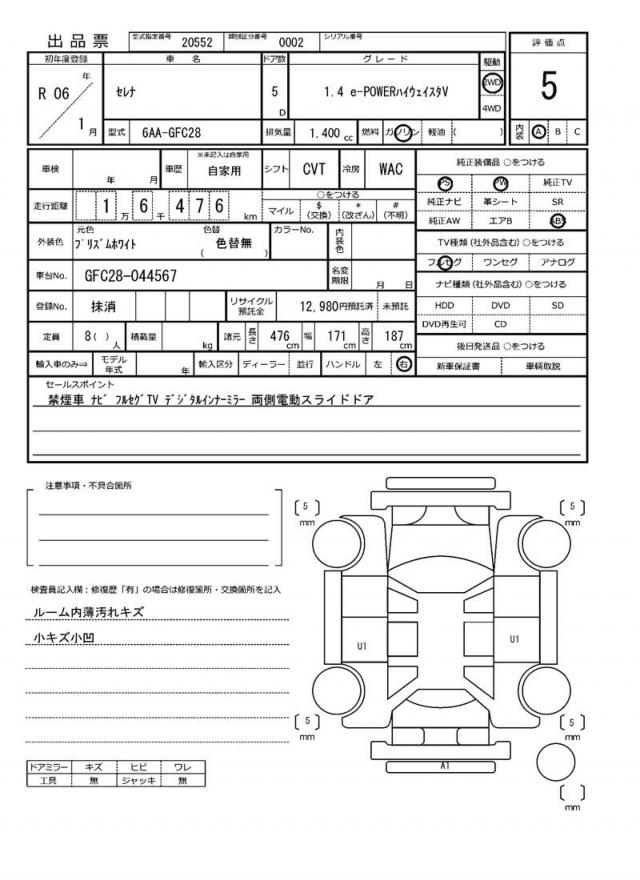 出品票 型式指定番号 20552 類別区分番号 0002 シリアル番号
評価点
5
内装 A B C
初年度登録 車名 ドア数 グレード 駆動
R 06 年 1 月 セレナ 5 D 1.4 e-POWERハイウェイスタV 2WD 4WD
型式 6AA-GFC28 排気量 1,400 cc 燃料 ガソリン 軽油 ( )
車検 年 月 車歴 ※未記入は自家用 自家用 シフト CVT 冷房 WAC
走行距離 1 万 6 千 4 7 6 km ○をつける
マイル $ (交換) * (改ざん) # (不明)
外装色 元色 プリズムホワイト 色替 ( 色替無 ) カラーNo. 内装色
車台No. GFC28-044567 名変期限 月 日
登録No. 抹消 リサイクル預託金 12,980円預託済 未預託
定員 8( )人 積載量 kg 諸元 長さ 476 cm 幅 171 cm 高さ 187 cm
輸入車のみ⇒ モデル年式 年 輸入区分 ディーラー 並行 ハンドル 左 右
純正装備品 ○をつける
PS PW 純正TV
純正ナビ 革シート SR
純正AW エアB ABS
TV種類(社外品含む) ○をつける
フルセグ ワンセグ アナログ
ナビ種類(社外品含む) ○をつける
HDD DVD SD
DVD再生可 CD
後日発送品 ○をつける
新車保証書 車輌取説
セールスポイント
禁煙車 ナビ フルセグTV デジタルインナーミラー 両側電動スライドドア
注意事項・不具合箇所
検査員記入欄：修復歴「有」の場合は修復箇所・交換箇所を記入
ルーム内薄汚れキズ
小キズ小凹
ドアミラー キズ ヒビ ワレ
工具 無 ジャッキ 無
[ 5 ] mm
[ 5 ] mm
U1
U1
[ 5 ] mm
[ 5 ] mm
A1
[ ] mm